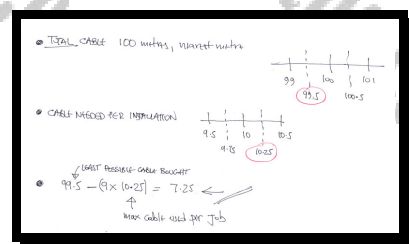 • TOTAL CABLE 100 metres, nearest metre
99 100 101
99.5 100.5
• CABLE NEEDED PER INSTALLATION
9.5 10 10.5
9.75 10.25
LEAST POSSIBLE CABLE BOUGHT
• 99.5 – (9 × 10.25) = 7.25 ←
max cable used per job